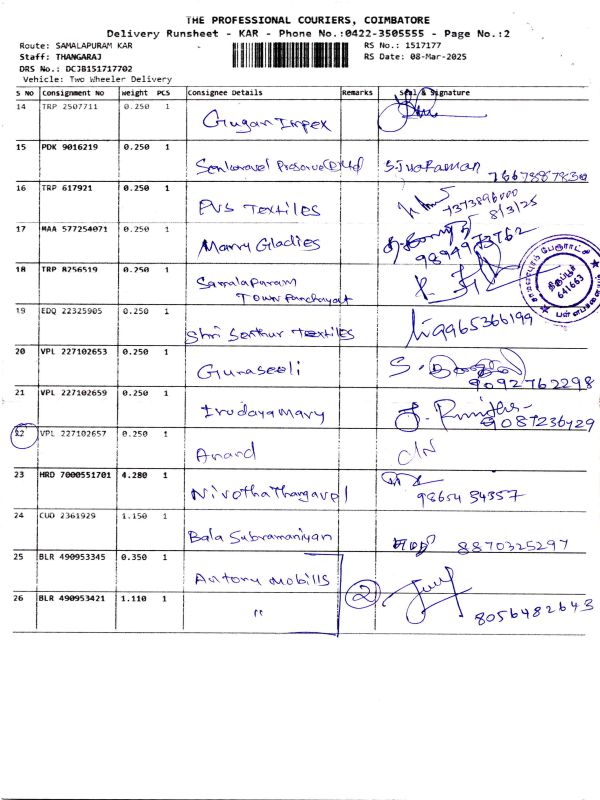 THE PROFESSIONAL COURIERS, COIMBATORE
Delivery Runsheet - KAR - Phone No.:0422-3505555 - Page No.:2
Route: SAMALAPURAM KAR RS No.: 1517177
Staff: THANGARAJ RS Date: 08-Mar-2025
DRS No.: DCJB151717702
Vehicle: Two Wheeler Delivery
S NO Consignment No Weight PCS Consignee Details Remarks Seal & Signature
14 TRP 2507711 0.250 1
Gugan Impex
15 PDK 9016219 0.250 1
S.Jvaraman
7667878730
16 TRP 617921 0.250 1
EVS Textiles
7373896000
8/3/25
17 MAA 577254071 0.250 1
Marry Gladies
9894973762
18 TRP 8256519 0.250 1
Samalapuram
Town Panchayat
641663
19 EDQ 22325905 0.250 1
Shri Senthur Textiles 9965366199
20 VPL 227102653 0.250 1
Gunaseeli
9092762298
21 VPL 227102659 0.250 1
Irudayamary
9087236429
22 VPL 227102657 0.250 1
Anand C/N
23 HRD 7000551701 4.280 1
Nivotha Thangavel 98654 34357
24 CUD 2361929 1.150 1
Bala Subramaniyan 8870325297
25 BLR 490953345 0.350 1
Antony Mobills
2
26 BLR 490953421 1.110 1
"
8056482643